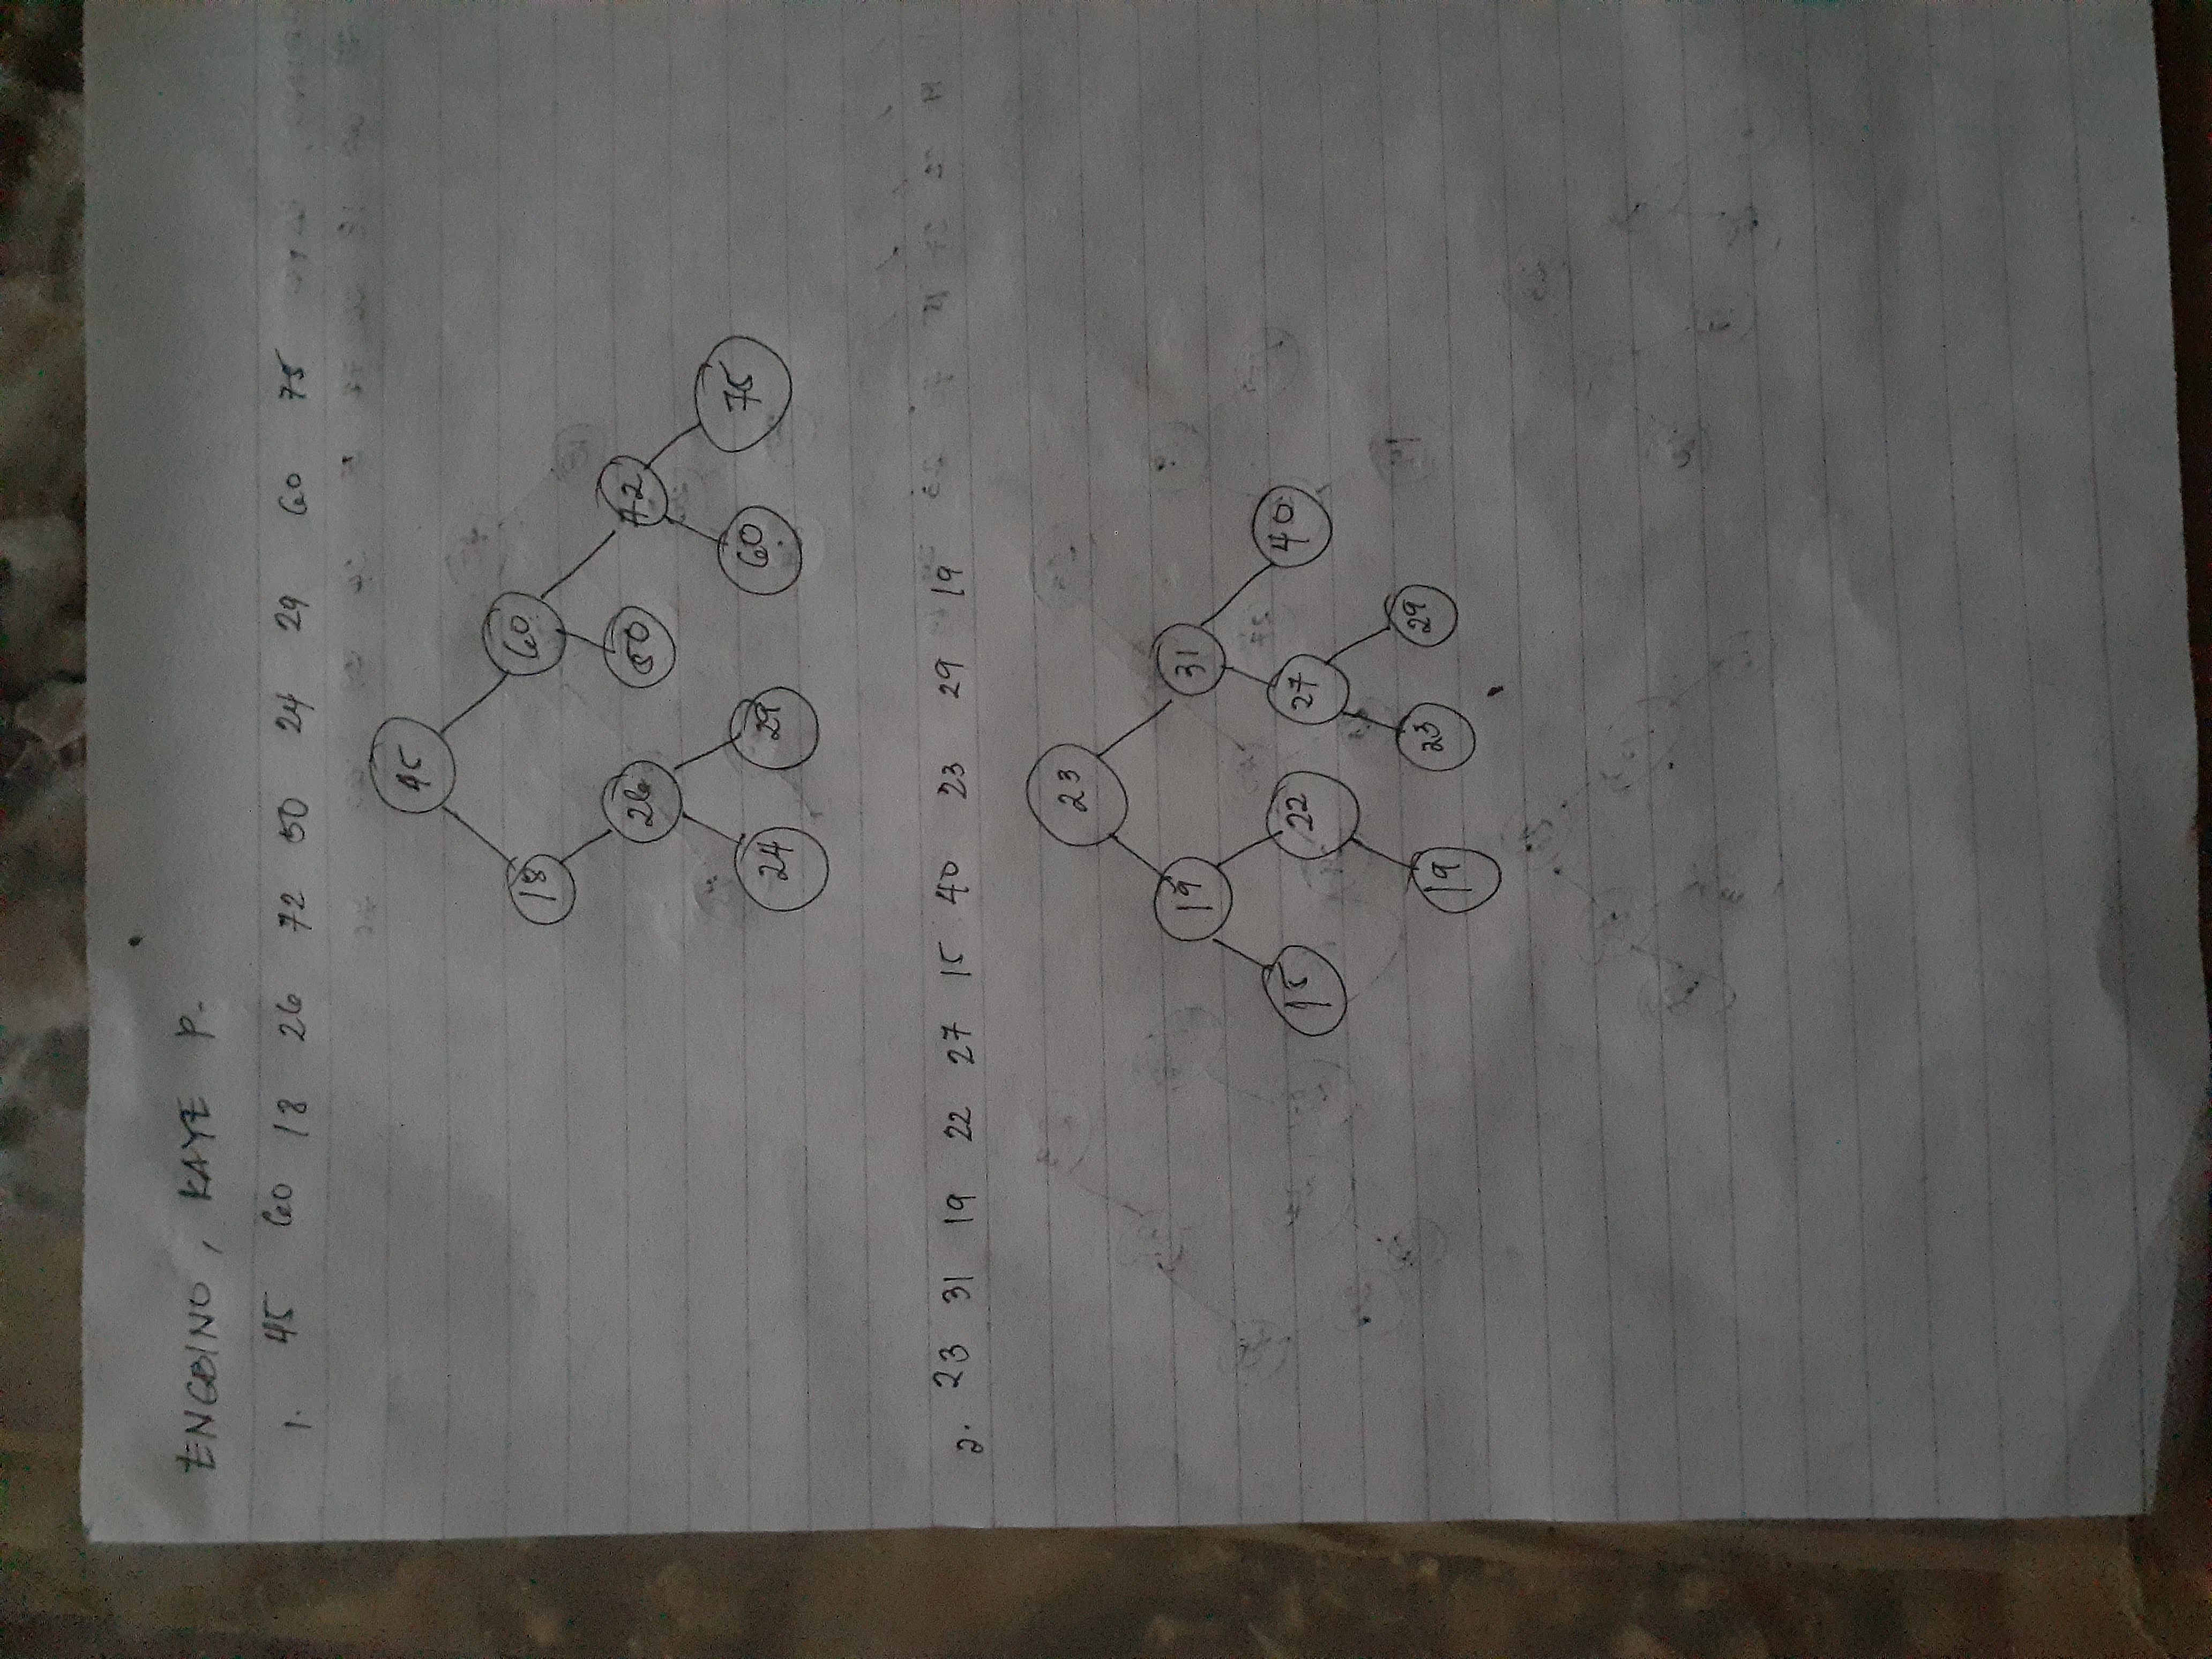 ENGBINO, KAYE P.
1. 45 60 18 26 72 50 24 29 60 75
45
18 60
26 50 72
24 29 60 75
2. 23 31 19 22 27 15 40 23 29 19
23
19 31
15 22 27 40
19 23 29